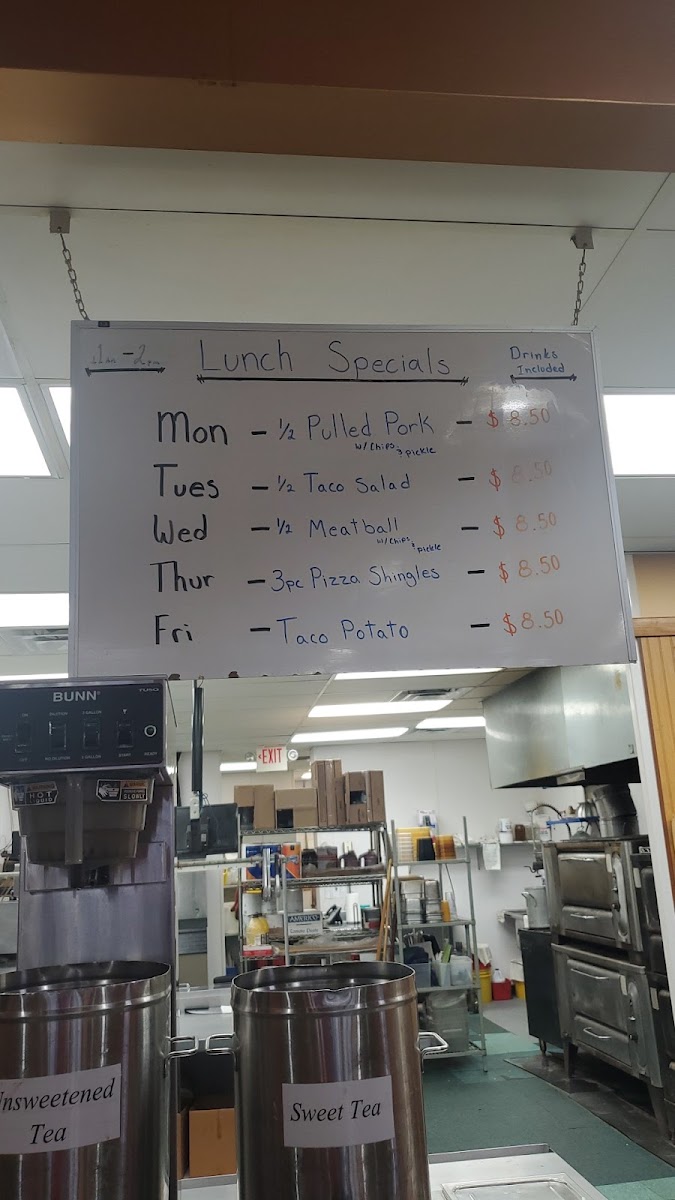 11am - 2pm
Lunch Specials
Drinks
Included
Mon - 1/2 Pulled Pork - $8.50
w/chips & pickle
Tues - 1/2 Taco Salad - $8.50
Wed - 1/2 Meatball - $8.50
w/chips & pickle
Thur - 3pc Pizza Shingles - $8.50
Fri - Taco Potato - $8.50
BUNN
EXIT
nsweetened
Tea
Sweet Tea